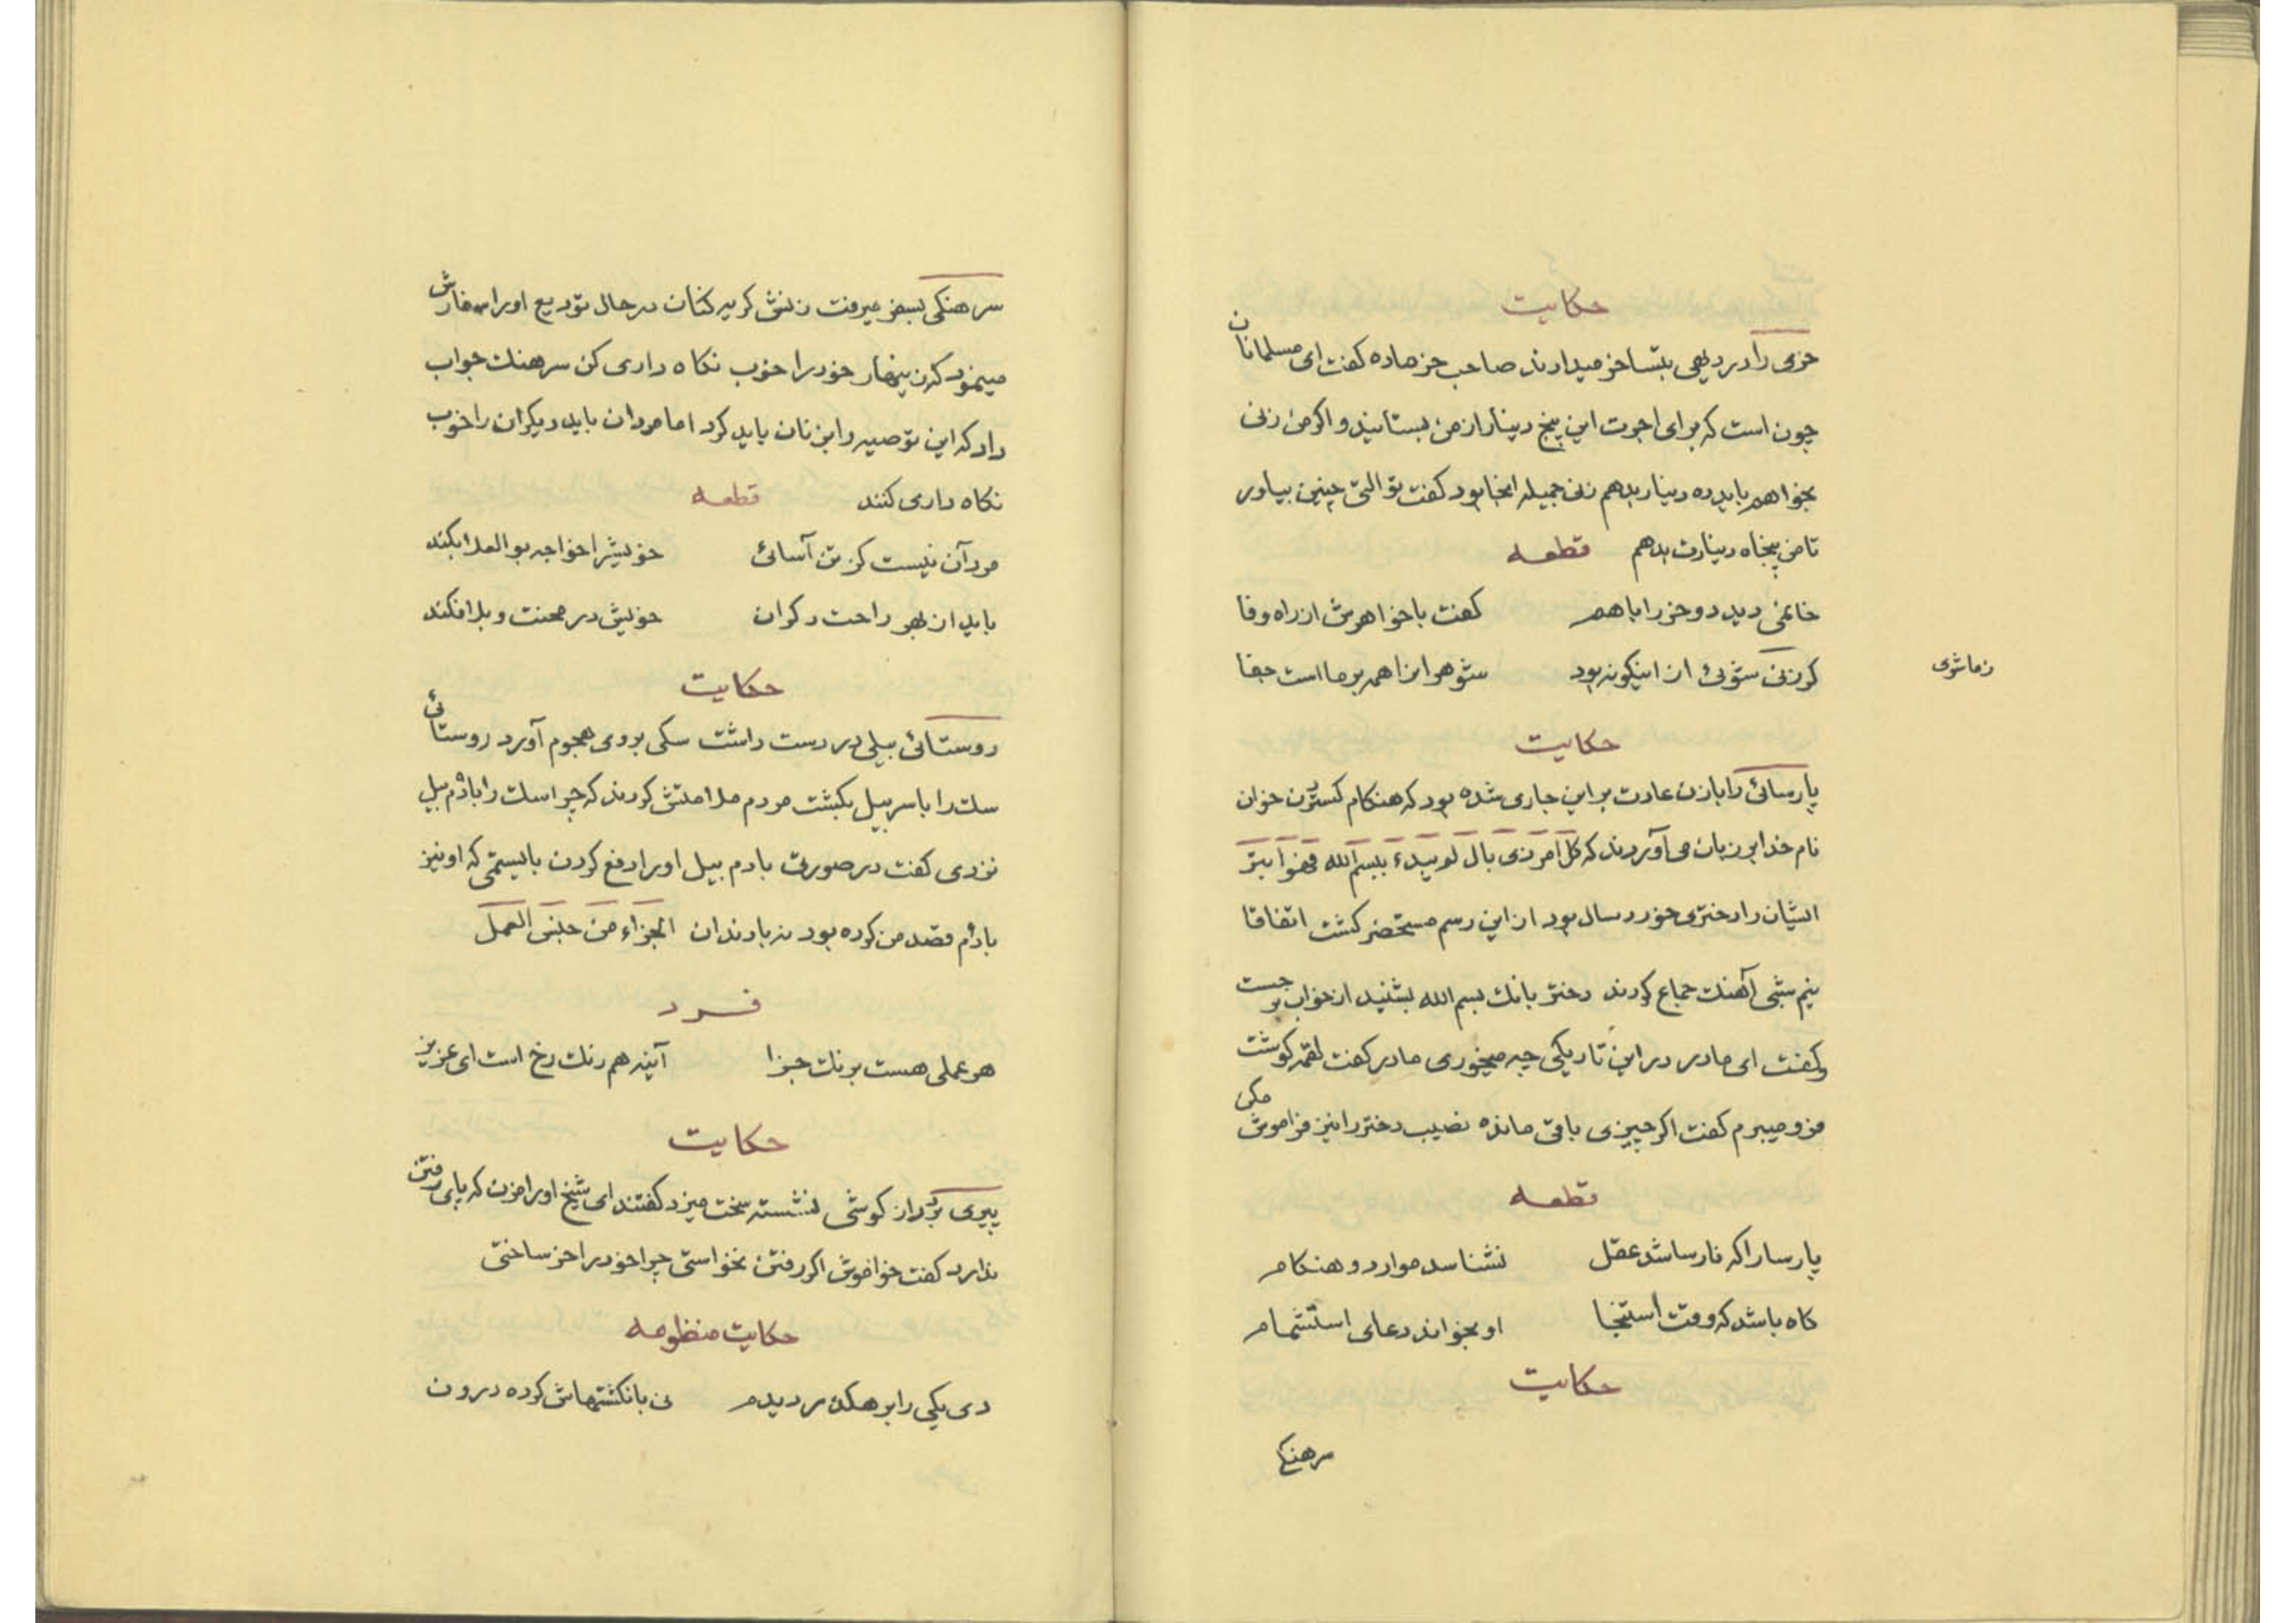 حکایت
خری را در دیهی بتساخر میدادند صاحب خر ماده کفت ای مسلمانان
چون است که برای اجرت این پنج دینار از من بستانید و اکر من زنی
بخواهم باید ده دینار بدهم زنی جمیله انجا بود کفت تو التی چنین بیاور
تا من پنجاه دینارت بدهم قطعه
خانمی دید دو خر را باهم کفت با خواهرش از راه وفا
کر زنی شوئی از اینکونه بود شوهر انرا همه بر ما است جفا
زماشوی
حکایت
پارسائی را با زن عادت بر این جاری شده بود که هنکام کستردن خوان
نام خدا بر زبان می آوردند که کل امر ذی بال لم یبدء ببسم الله فهو ابتر
ایشان را دختری خورد سال بود از این رسم مستحضر کشت اتفاقا
نیم شبی آهنك جماع کردند دختر بانك بسم الله بشنید از خواب بر جست
وکفت ای مادر در این تاریکی چه میخوری مادر کفت لقمه کوشت
فرو میبرم کفت اکر چیزی باقی مانده نصیب دختر را نیز فراموش مکن
قطعه
پارسا را که نارسا شد عقل نشناسد موارد و هنکام
کاه باشد که وقت استنجا او بخواند دعای استشمام
حکایت
سرهنکی
سرهنکی بسفر میرفت زنش کریه کنان در حال تودیع او را سفارش
مینمود که زینهار خود را خوب نکاه داری کن سرهنك جواب
داد که این توصیه را بزنان باید کرد اما مردان باید دیکران را خوب
نکاه داری کنند قطعه
مرد آن نیست کز تن آسائی خویشرا خواجه بو العلا بکند
باید از بهر راحت دکران خویش در محنت و بلا فکند
حکایت
روستائی بیلی در دست داشت سکی بر وی هجوم آورد روستائی
سك را با سر بیل بکشت مردم ملامتش کردند که چرا سك را با دم بیل
نزدی کفت در صورتی با دم بیل او را دفع کردن بایستمی که او نیز
با دم قصد من کرده بود نه با دندان الجزاء من جنس العمل
فرد
هر عملی هست برنك جزا آینه هم رنك رخ است ای عزیز
حکایت
پیری بر دراز کوشی نشسته سخت میزد کفتند ای شیخ او را مزن که پای رفتن
ندارد کفت خواموش اکر رفتن نخواستی چرا خود را خر ساختی
حکایت منظومه
دی یکی را بر هکذر دیدم نی بانکشتهاش کرده درون